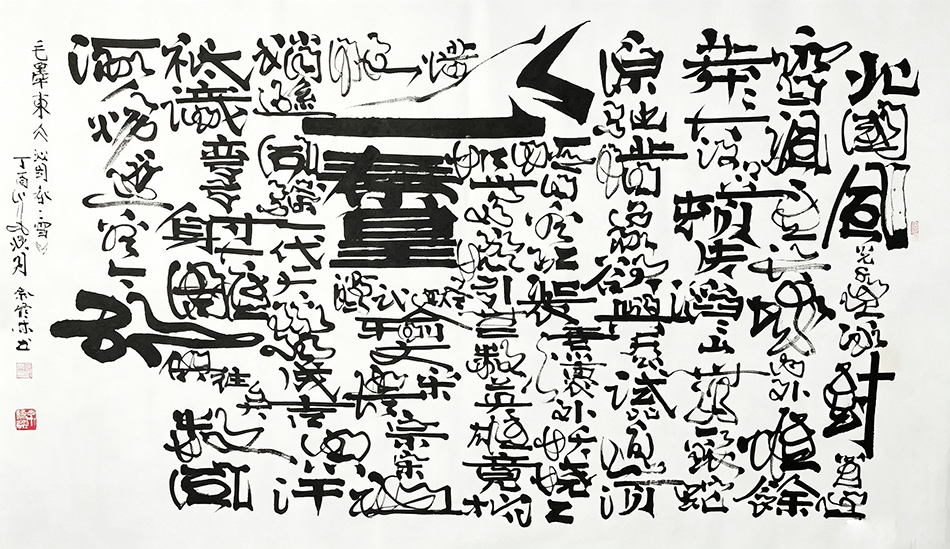 北國風光千里冰封萬里
雪飄望長城內外惟餘
莽莽大河上下頓失滔滔山舞銀蛇
原馳蠟象欲與天公試比高須
晴日看紅裝素裹分外妖嬈江
山如此多嬌引無數英雄競折
腰惜秦皇漢武略輸文采唐宗宋
祖稍遜風騷一代天驕成吉思汗
只識彎弓射大雕俱往矣數風
流人物還看今朝
毛澤東詞沁園春：雪
丁酉 月 書